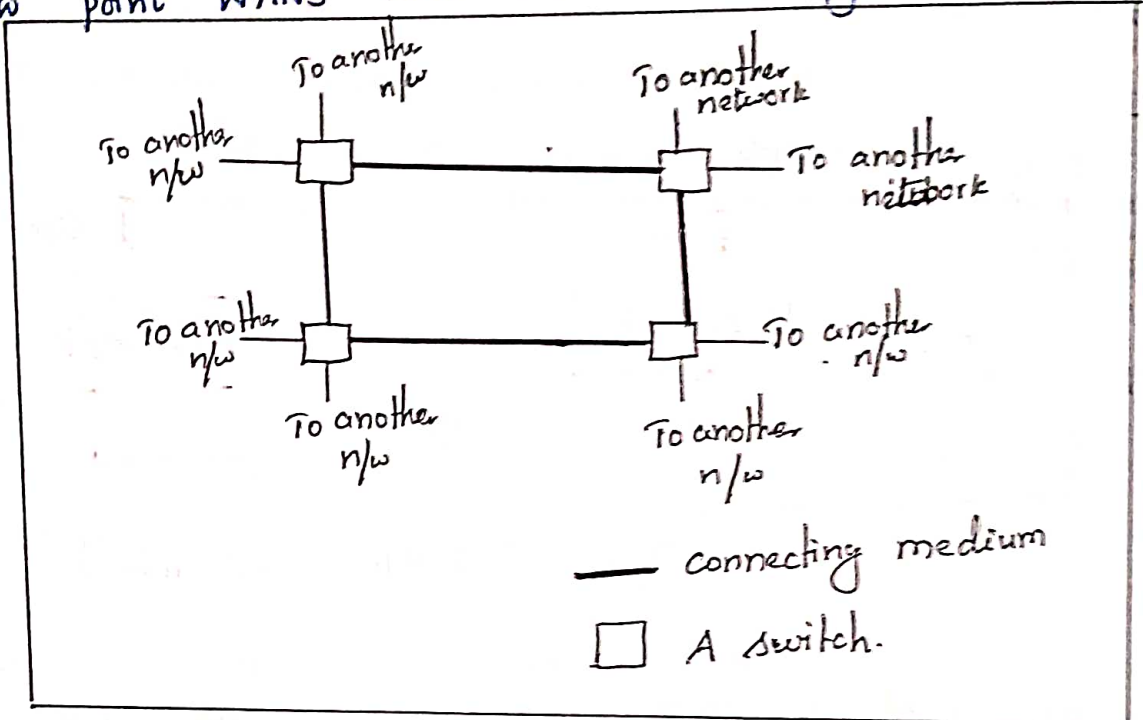 point WANS
To another
n/w
To another
network
To another
n/w
To another
network
To another
n/w
To another
n/w
To another
n/w
To another
n/w
connecting medium
A switch.